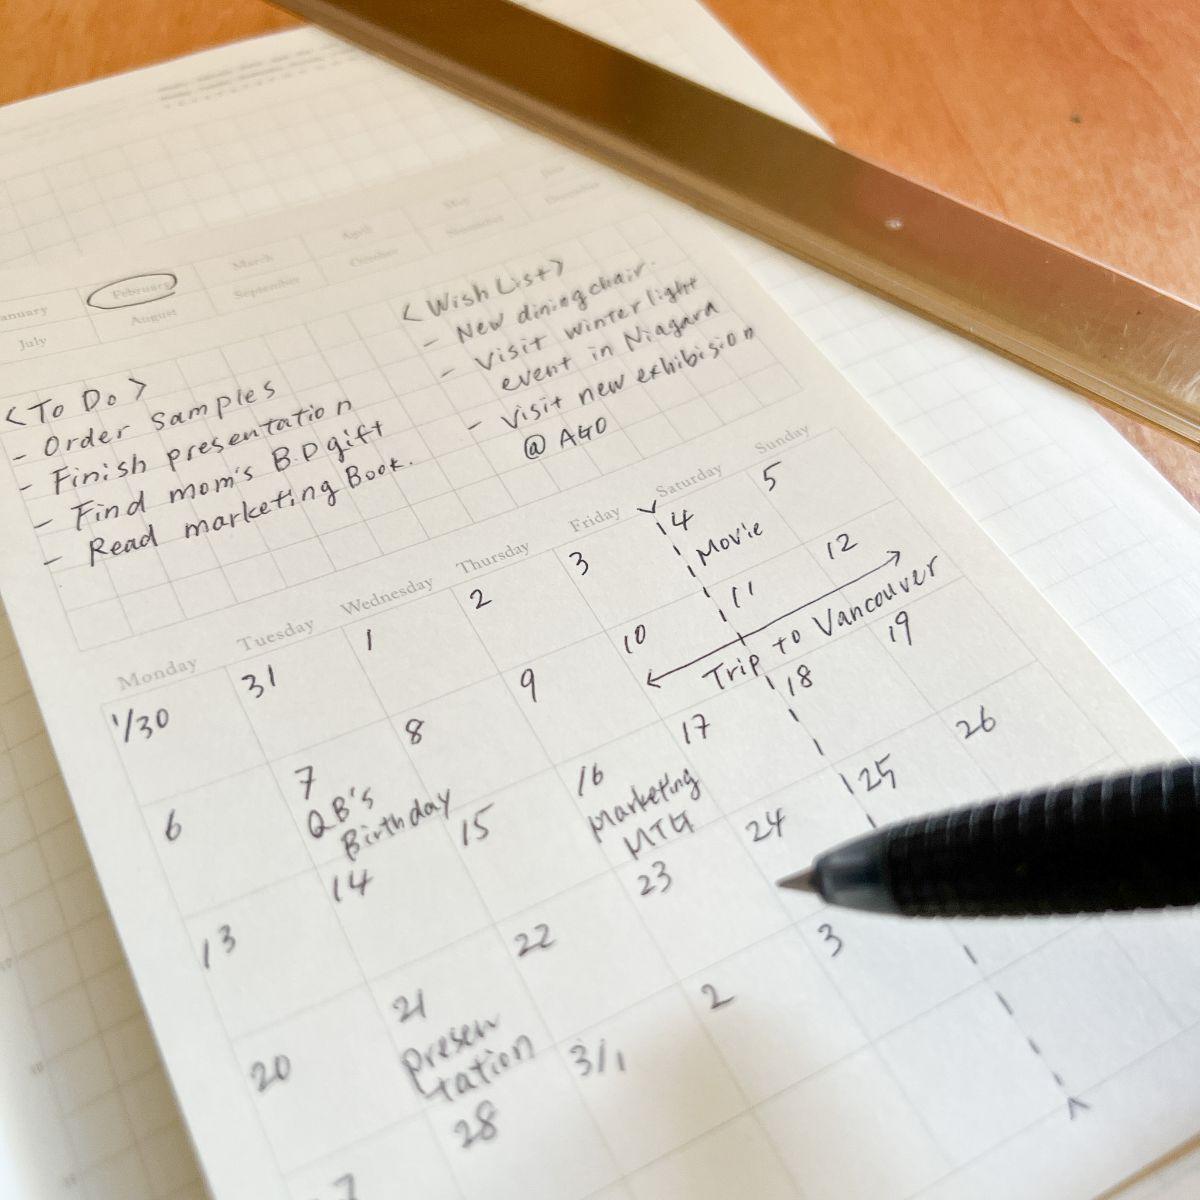 January February March April May
July August September October November December
<To Do>
- Order samples
- Finish presentation
- Find mom's B.D gift
- Read marketing Book.
<Wish List>
- New dining chair.
- Visit winter light
event in Niagara
- Visit new exhibision
@ AGO
Monday Tuesday Wednesday Thursday Friday Saturday Sunday
1/30 31 1 2 3 4 5
Movie
6 7 8 9 10 11 12
QB's
Birthday
Trip to Vancouver
13 14 15 16 17 18 19
Marketing
MTG
20 21 22 23 24 25 26
Presen
tation
28 3/1 2 3